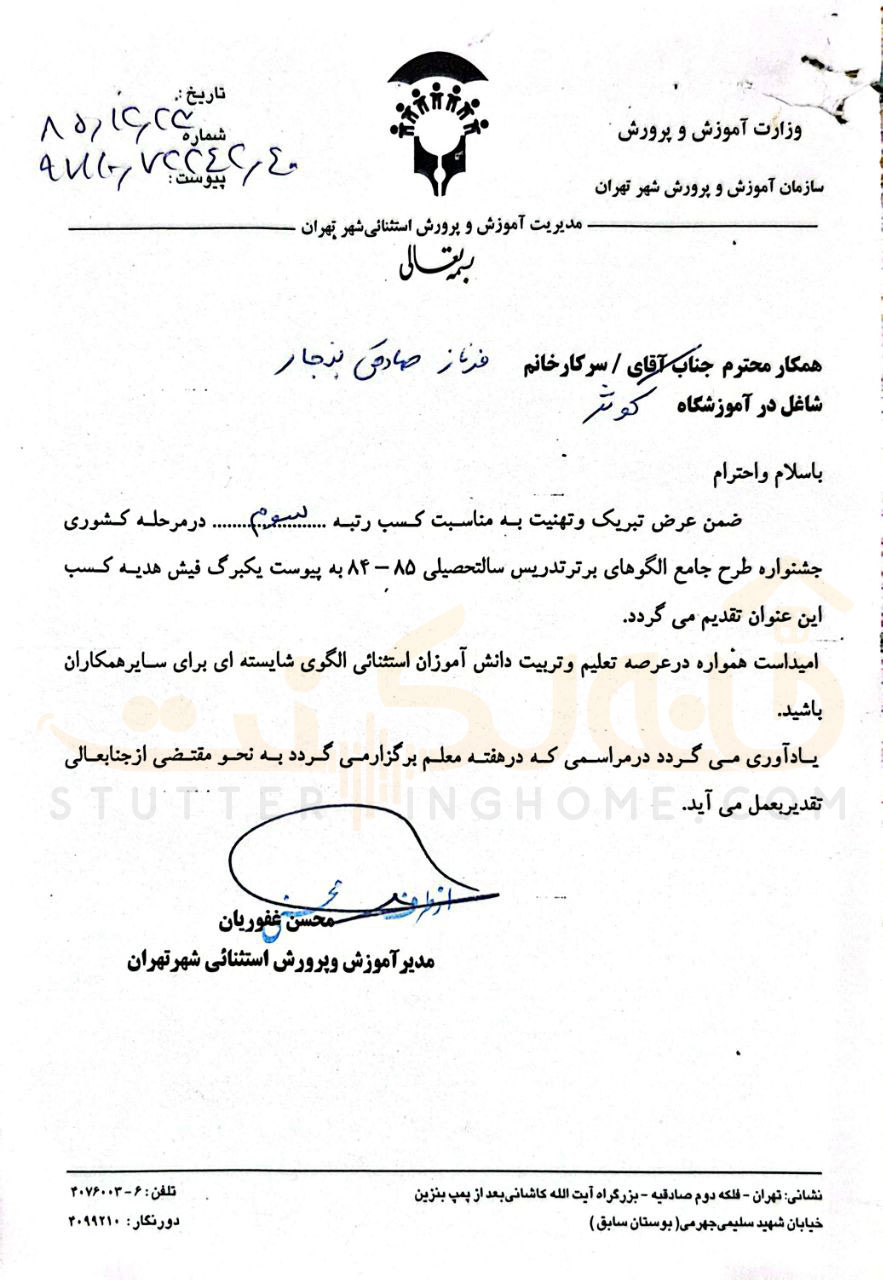 وزارت آموزش و پرورش
سازمان آموزش و پرورش شهر تهران
تاریخ:
شماره
پیوست:
مدیریت آموزش و پرورش استثنائی شهر تهران
بسمه تعالی
همکار محترم جناب آقای / سرکارخانم فرناز صادقی
شاغل در آموزشگاه کوثر
باسلام واحترام
ضمن عرض تبریک وتهنیت به مناسبت کسب رتبه ......سوم...... درمرحله کشوری
جشنواره طرح جامع الگوهای برترتدریس سالتحصیلی ۸۵ – ۸۴ به پیوست یکبرگ فیش هدیه کسب
این عنوان تقدیم می گردد.
امیداست همواره درعرصه تعلیم وتربیت دانش آموزان استثنائی الگوی شایسته ای برای سایرهمکاران
باشید.
یادآوری می گردد درمراسمی که درهفته معلم برگزارمی گردد به نحو مقتضی ازجنابعالی
تقدیربعمل می آید.
خانه لکنت
STUTTERINGHOME.COM
از طرف
محسن غفوریان
مدیرآموزش وپرورش استثنائی شهرتهران
نشانی: تهران - فلکه دوم صادقیه - بزرگراه آیت الله کاشانی بعد از پمپ بنزین
خیابان شهید سلیمی جهرمی( بوستان سابق )
تلفن: ۶-۴۰۷۶۰۰۳
دورنگار: ۴۰۹۹۲۱۰